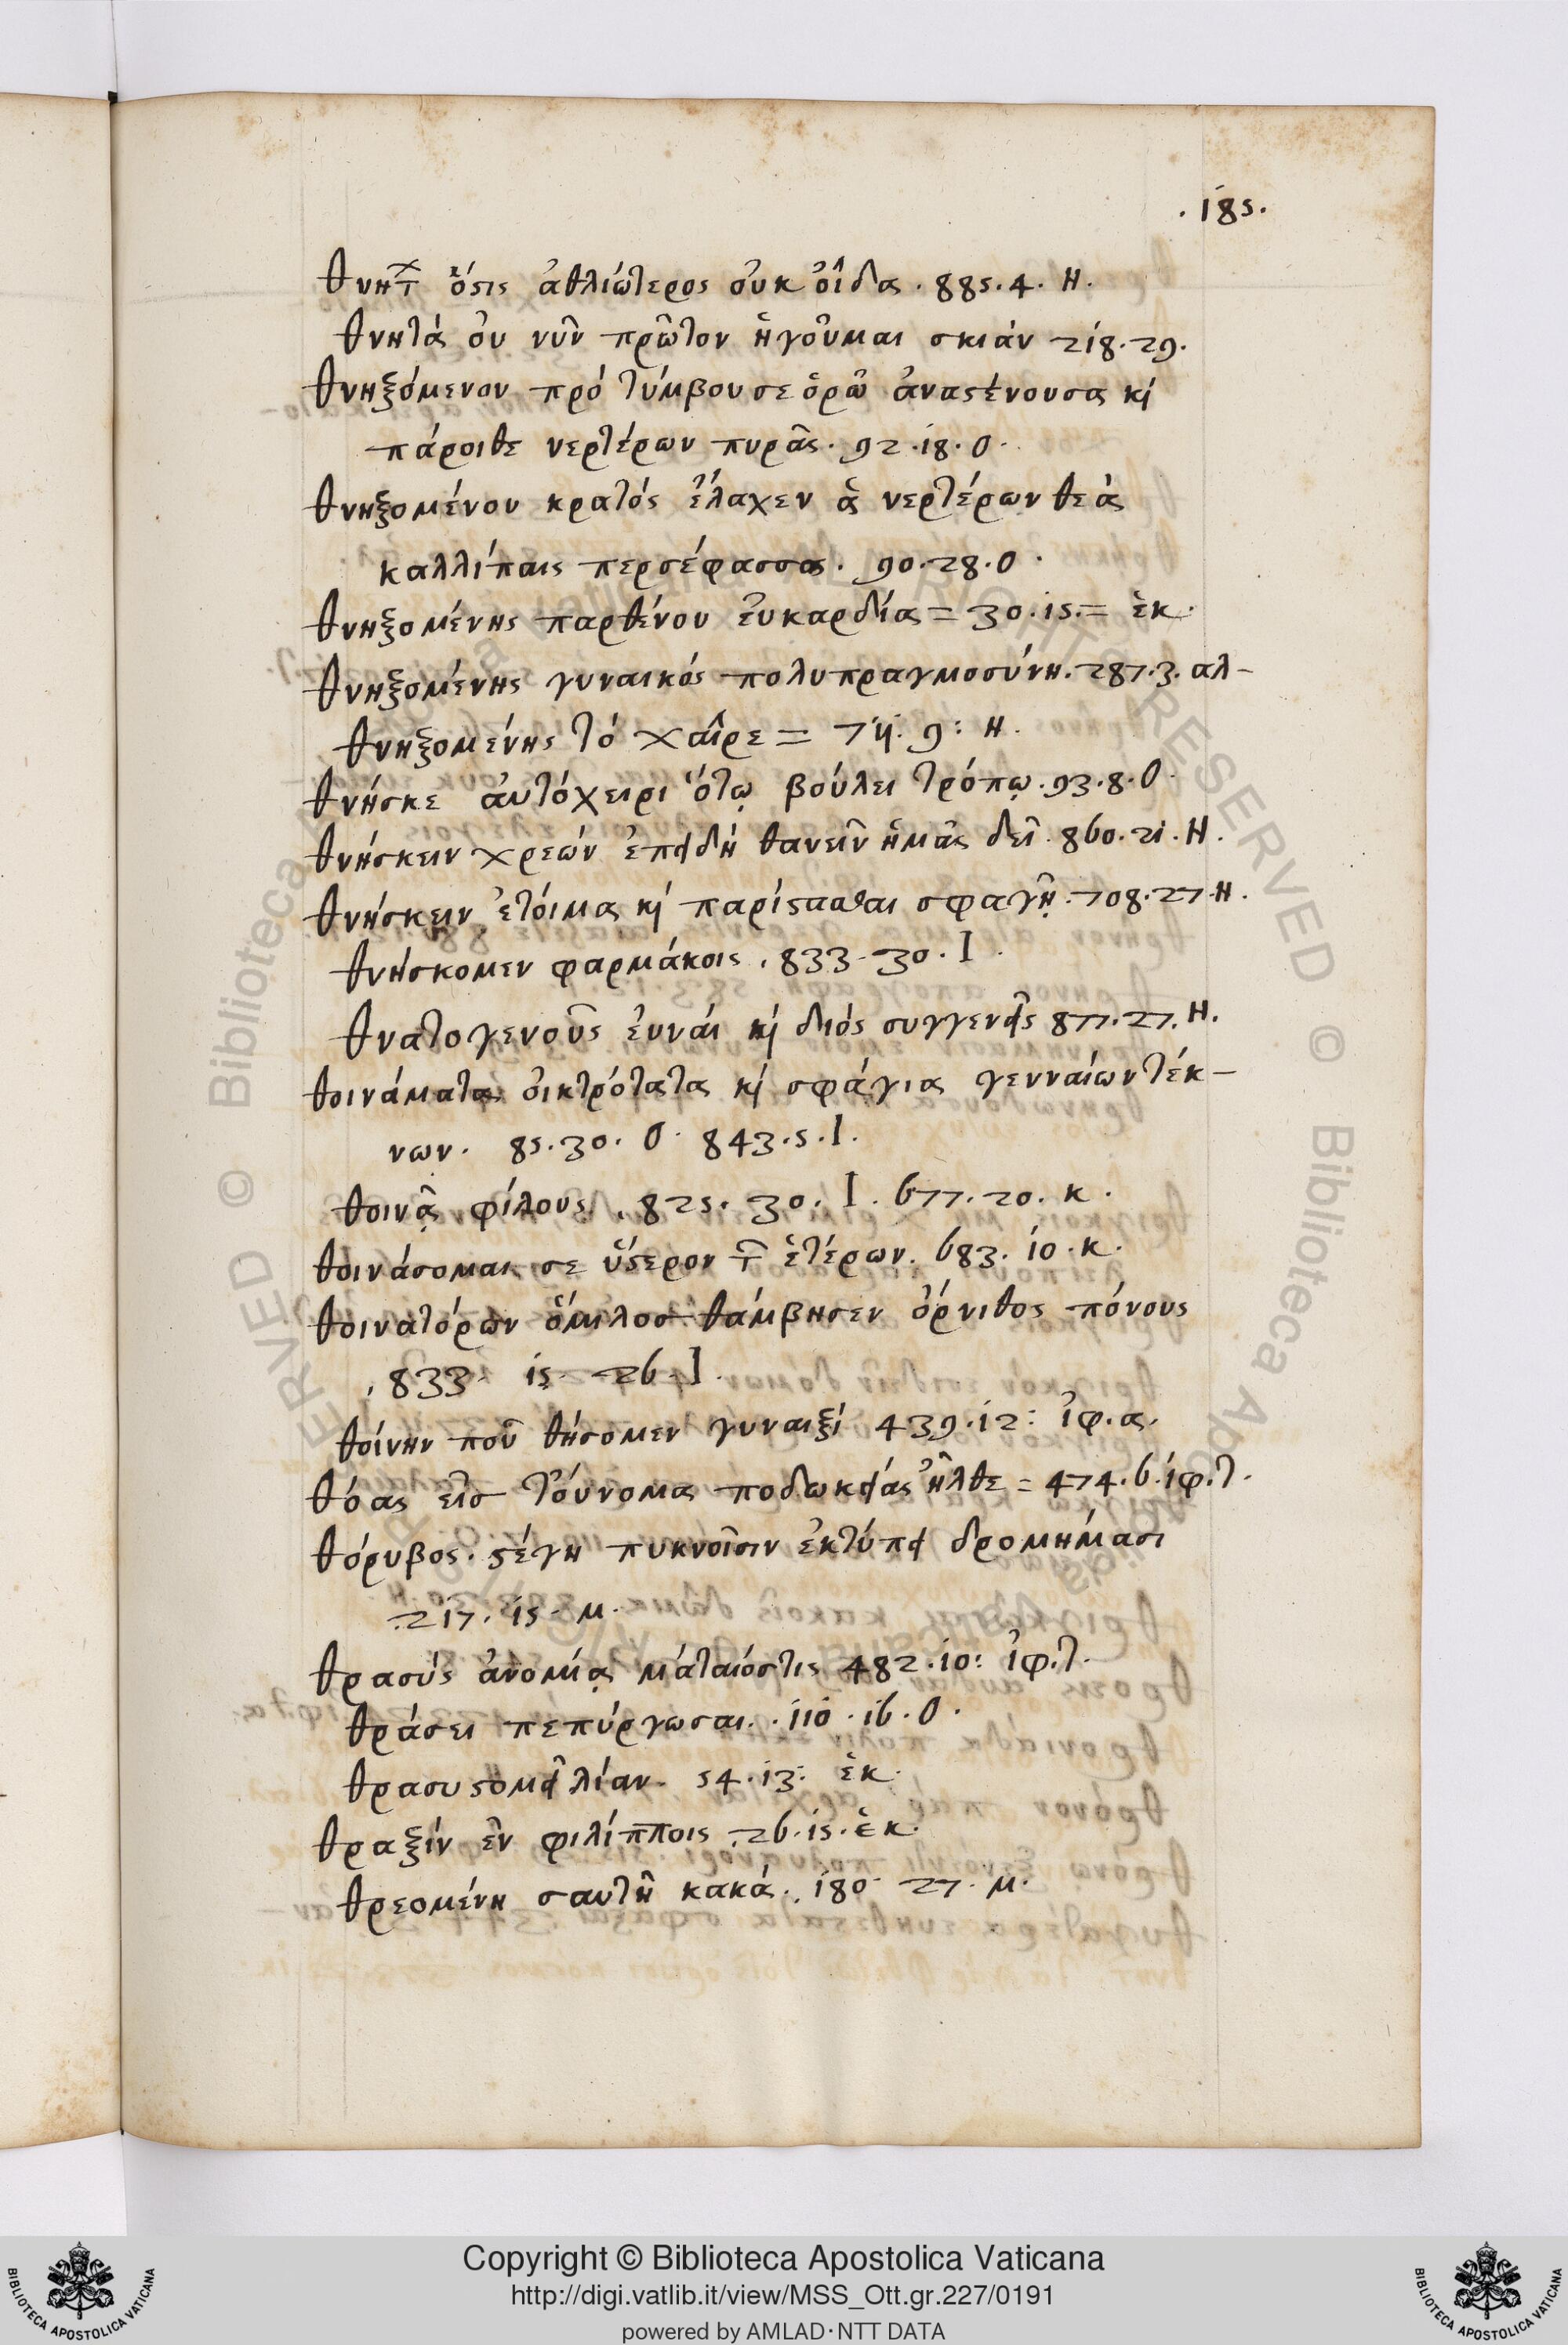 .185.
θνητῶν ὅστις ἀθλιώτερος οὐκ οἶδα. 885. 4. Η.
θνητὰ οὐ νῦν πρῶτον ἡγοῦμαι σκιάν 218. 29.
θνηξόμενον πρό τύμβου σε ὁρῶ ἀναστένουσα κ́
πάροιθε νερτέρων πυρᾶς. 92. 18. Ο.
θνηξομένου κρατός ἔλαχεν ἁ νερτέρων θεά
καλλίπαις περσέφασσα. 90. 28. Ο.
θνηξομένης παρθένου εὐκαρδία = 30. 15. = ἑκ.
θνηξομένης γυναικός πολυπραγμοσύνη. 287. 3. αλ-
θνηξομένης τό χαῖρε = 9: Η.
θνῆσκε αὐτόχειρι ὅτῳ βούλει τρόπῳ. 93. 8. Ο.
θνήσκειν χρεών ἐπειδή θανεῖν ἡμᾶς δεῖ. 860. 21. Η.
θνήσκειν ἑτοίμα κ́ παρίστασθαι σφαγῇ. 708. 27. Η.
θνήσκομεν φαρμάκοις. 833. 30. Ι.
θνατογενοῦς εὐναί κ́ διός συγγενεῖς 877. 27. Η.
θοινάματα οἰκτρότατα κ́ σφάγια γενναίων τέκ-
νων. 85. 30. Ο. 843. 5. Ι.
θοινᾷ φίλους. 825. 30. Ι. 677. 20. κ.
θοινάσομαι σε ὕστερον τῶν ἑτέρων. 683. 10. κ.
θοινατόρων ὅμιλος θάμβησεν ὄρνιθος πόνους
833. 15. 26. Ι.
θοίνην ποῦ θήσομεν γυναιξί 439. 12: ἰφ. α.
θόας εἰς τοὔνομα ποδωκείας ἦλθε = 474. 6. ἰφ. τ.
θόρυβος. στέγη πυκνοῖσιν ἐκτύπει δρομήμασι
217. 15. μ.
θρασύς ἀνομίᾳ 482. 10: ἰφ. τ.
θράσει πεπύργωσαι. 110. 16. Ο.
θρασυστομεῖ λίαν. 54. 13: ἑκ.
θραξίν ἐν φιλίπποις 26. 15. ἑκ.
θρεομένη σαυτῇ κακά. 180. 27. μ.
Copyright © Biblioteca Apostolica Vaticana
http://digi.vatlib.it/view/MSS_Ott.gr.227/0191
powered by AMLAD·NTT DATA